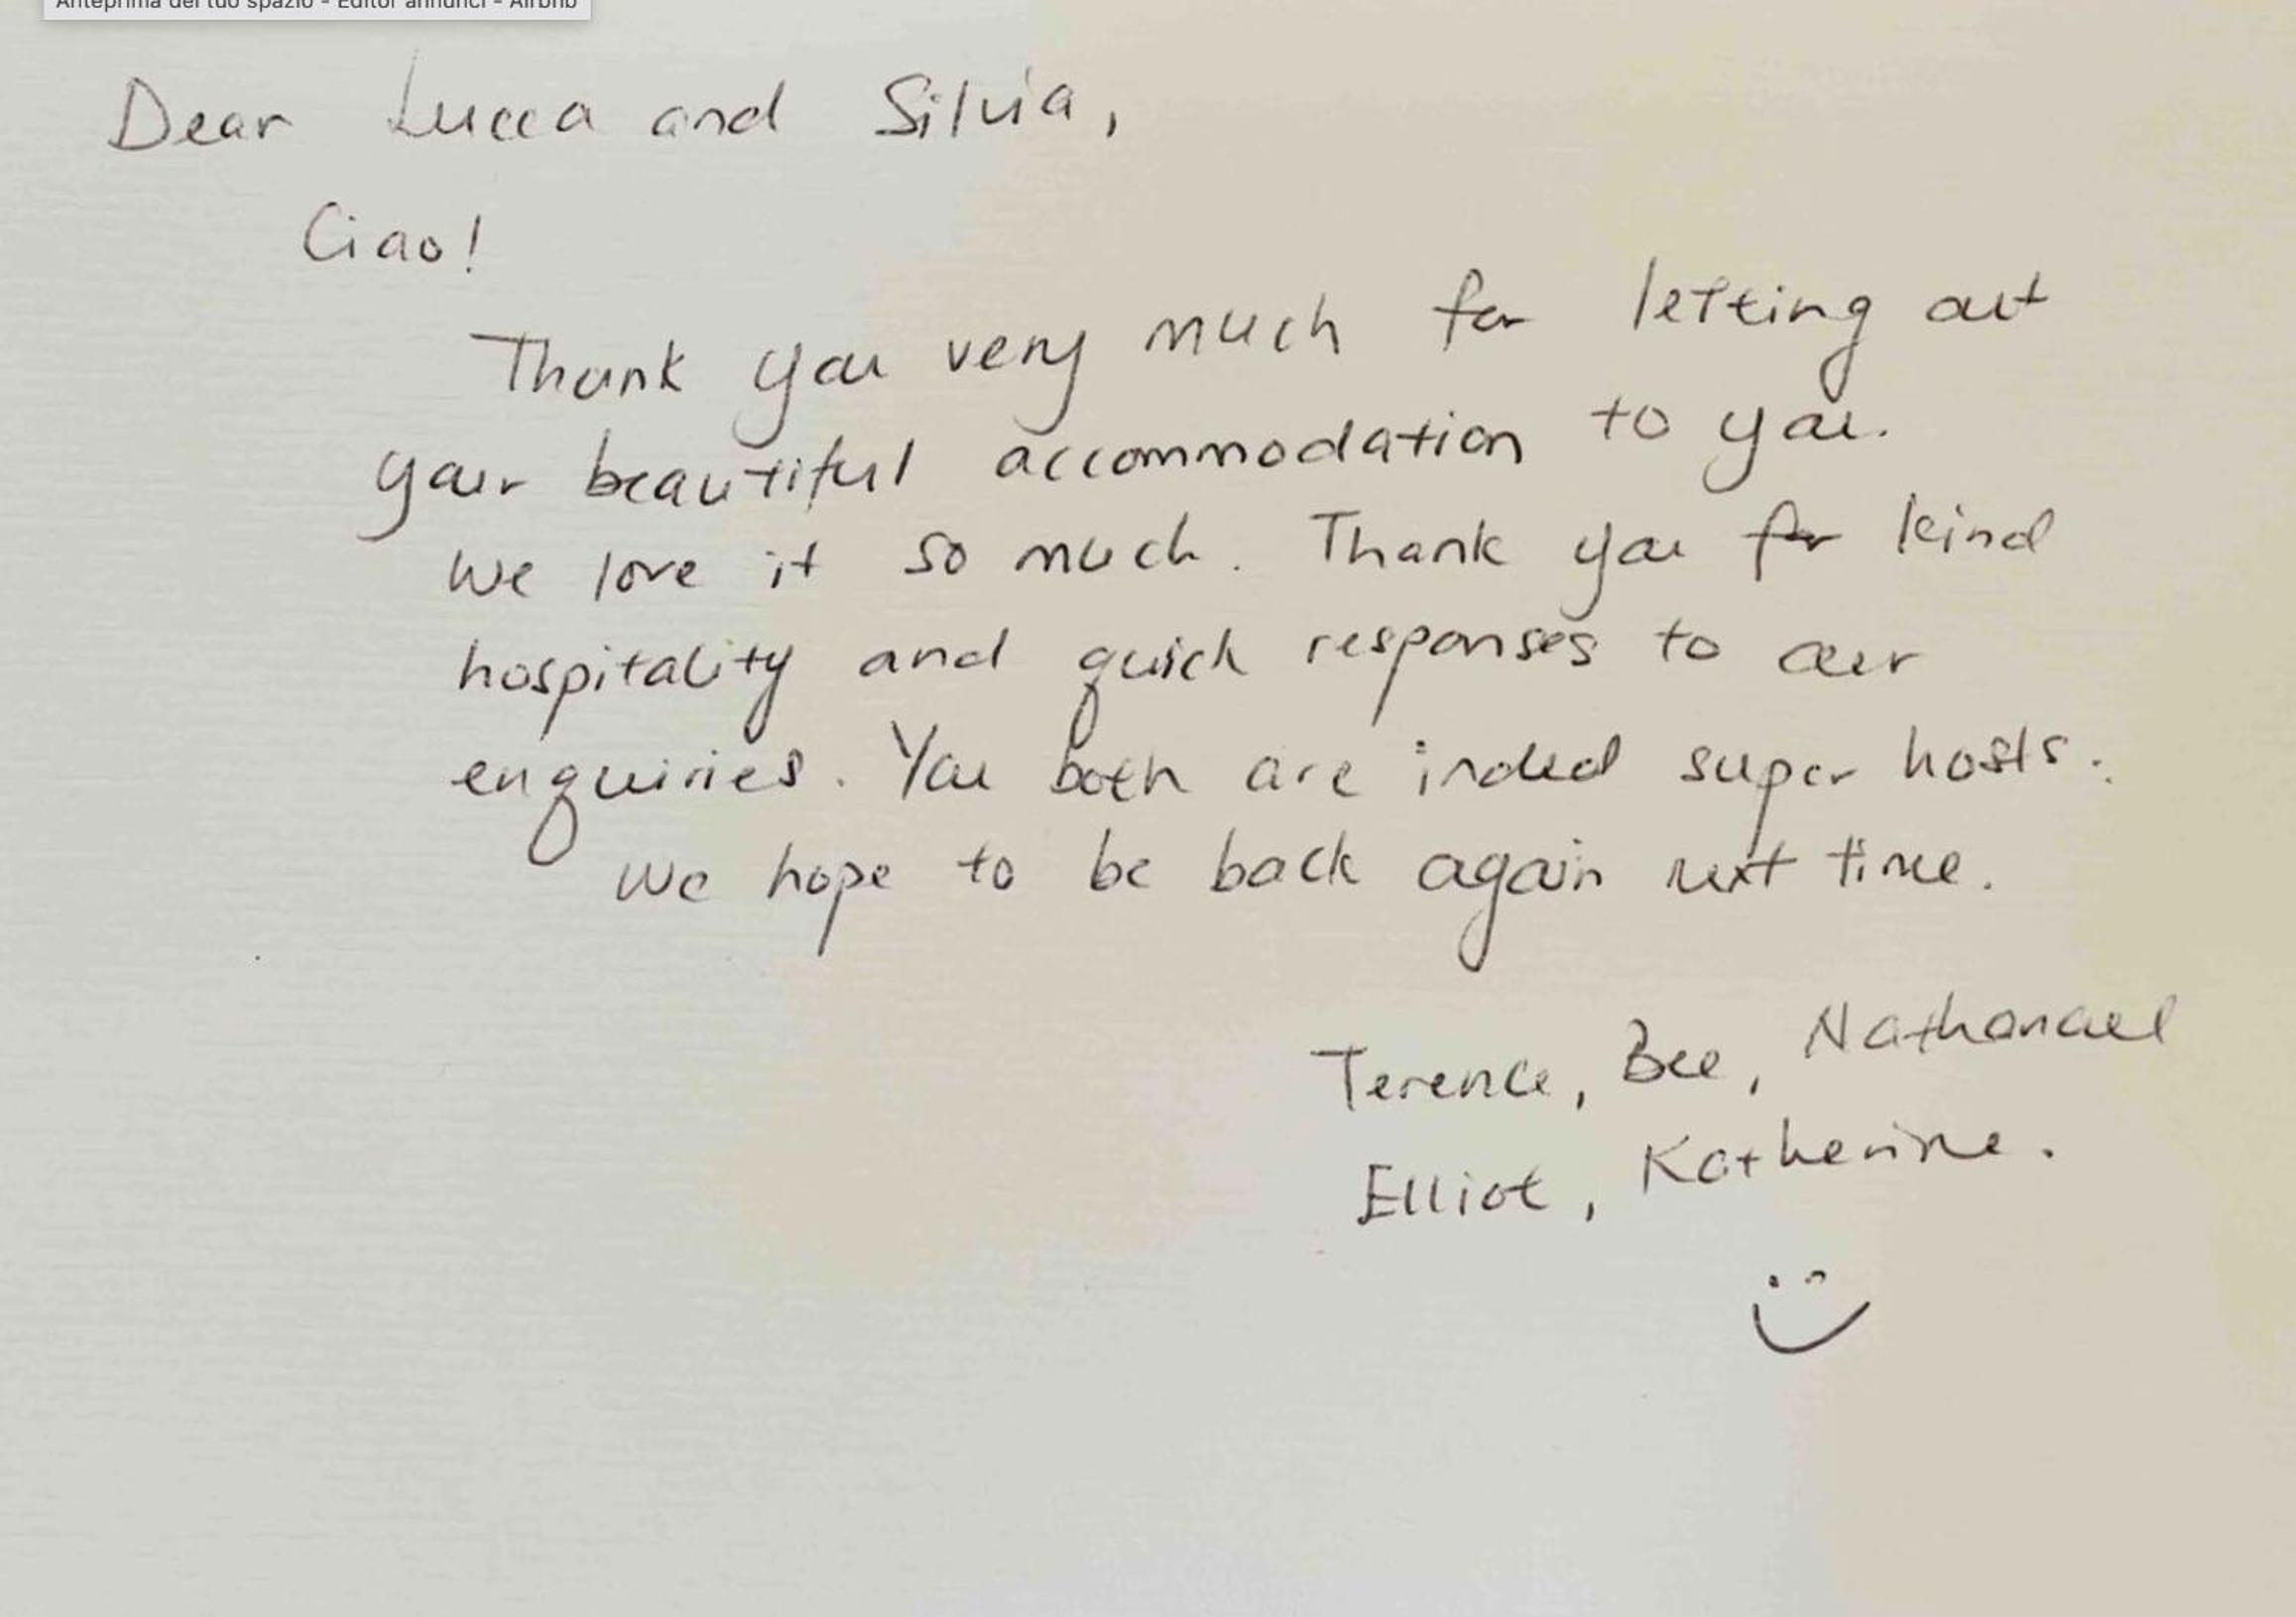 Anteprima del tuo spazio - Editor annunci - Airbnb
Dear Lucca and Silvia,
Ciao!
Thank you very much for letting out
your beautiful accommodation to you.
We love it so much. Thank you for kind
hospitality and quick responses to our
enquiries. You both are indeed super hosts.
We hope to be back again next time.
Terence, Bee, Nathanael
Elliot, Katherine.